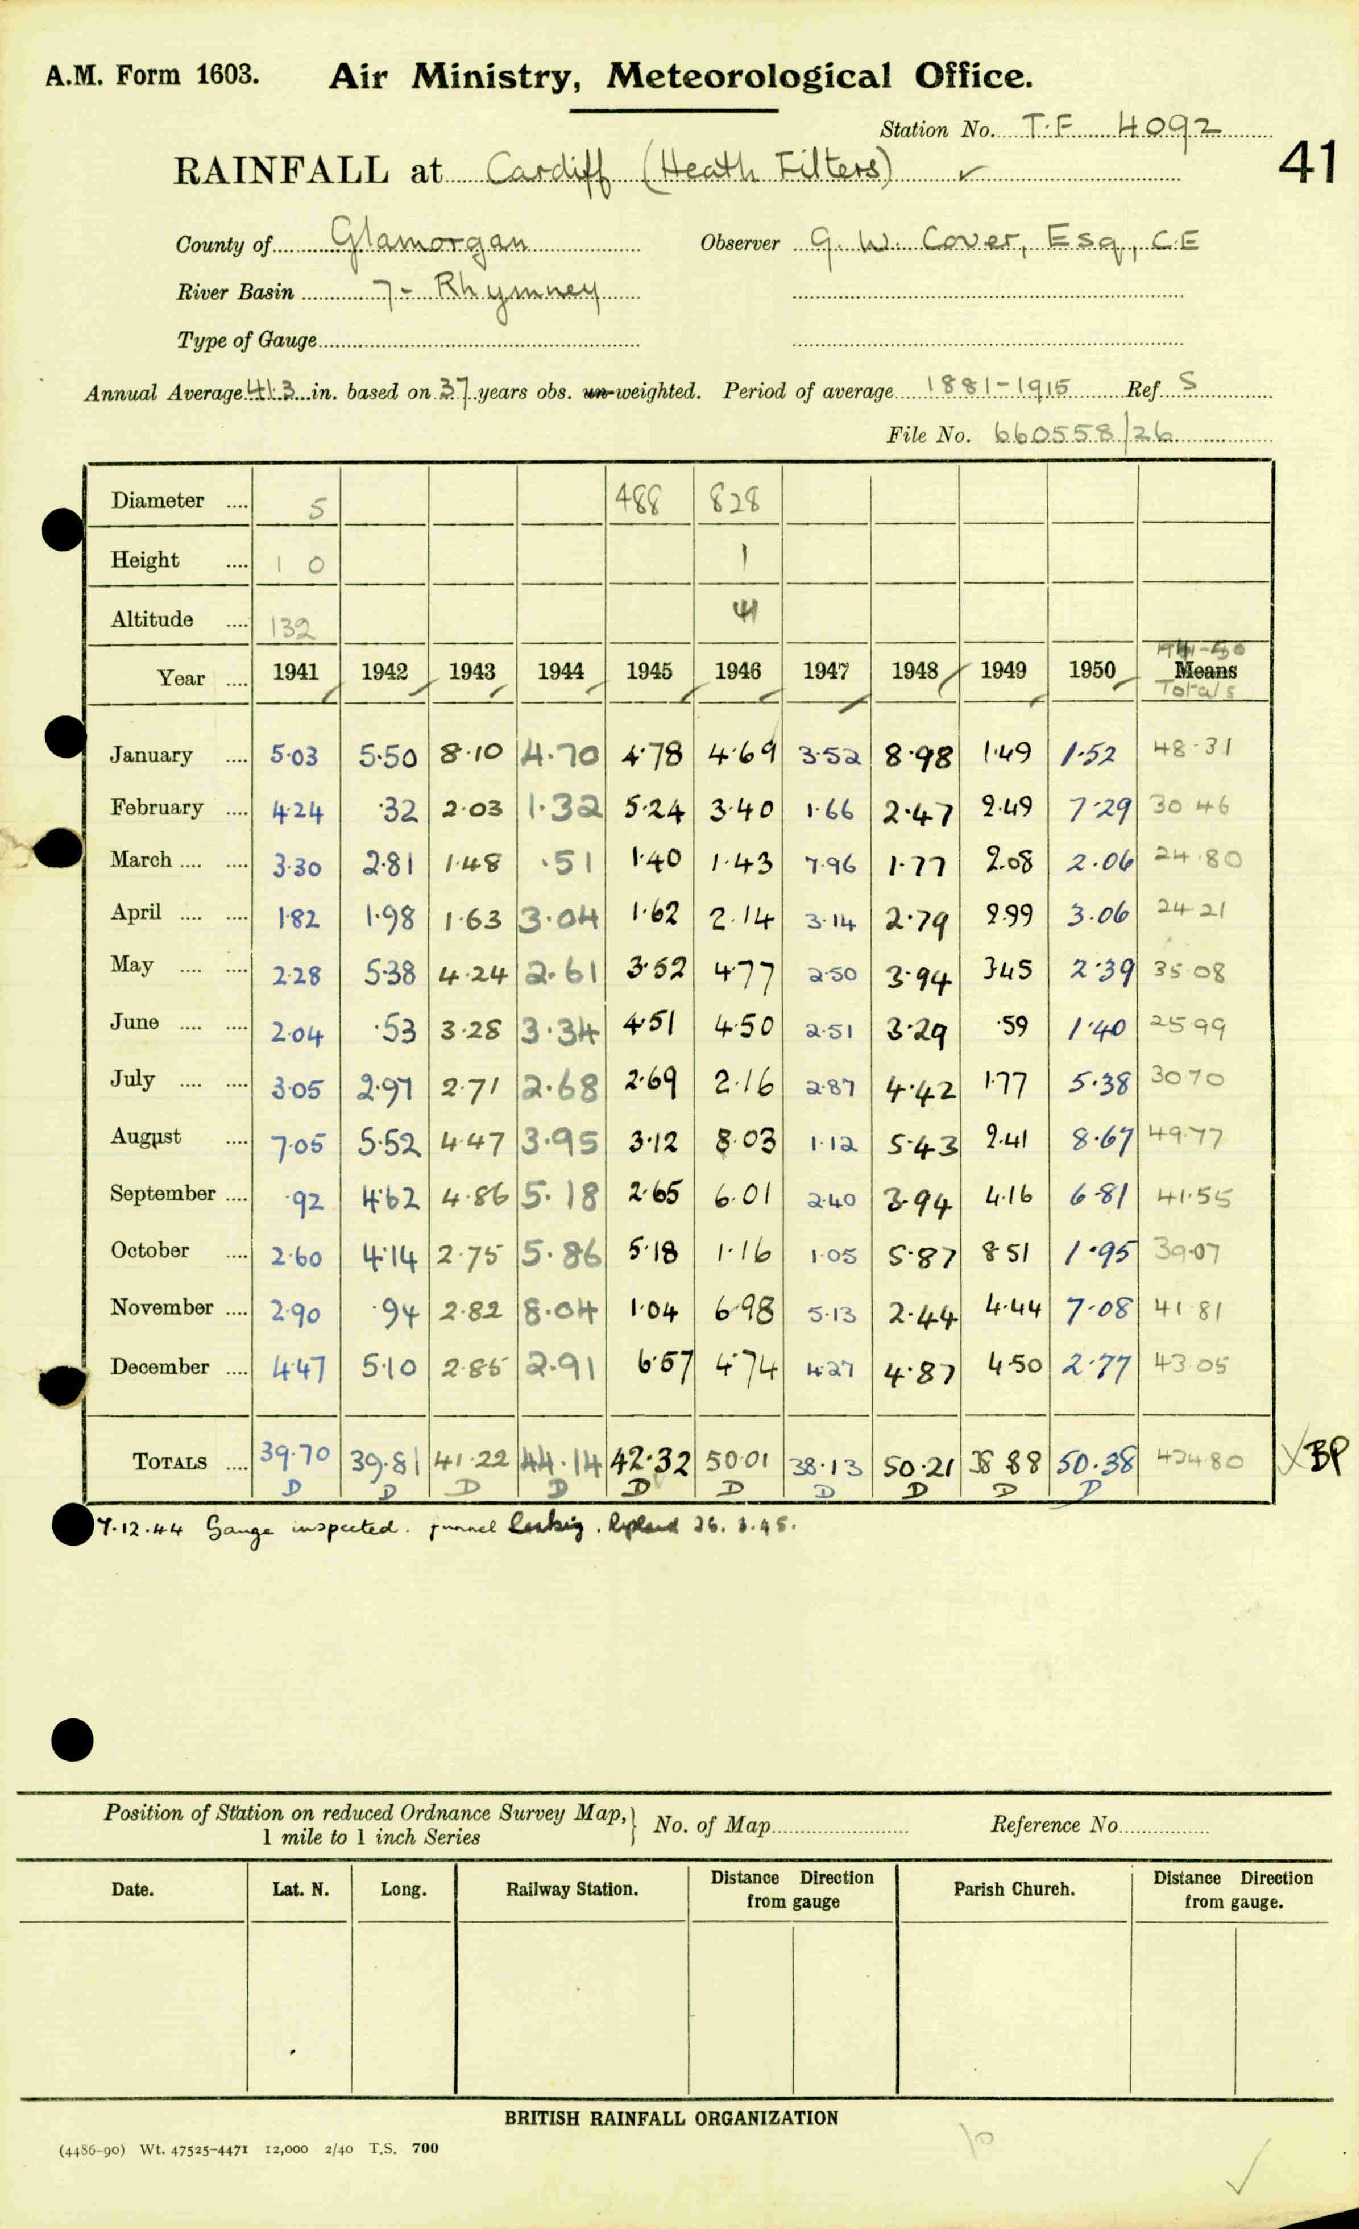 A.M. Form 1603. Air Ministry, Meteorological Office.
Station No. T.F 4092
41
RAINFALL at Cardiff (Heath Filters) ✓
County of Glamorgan Observer G. W. Cover, Esq., C.E
River Basin 7- Rhymney
Type of Gauge
Annual Average 41.3 in. based on 37 years obs. un-weighted. Period of average 1881-1915 Ref. S
File No. 660558/26
Diameter .... 5 488 828
Height .... 1 0 1
Altitude .... 132 41
1941-50
Year .... 1941 1942 1943 1944 1945 1946 1947 1948 1949 1950 Means
Totals
January .... 5.03 5.50 8.10 4.70 4.78 4.69 3.52 8.98 1.49 1.52 48.31
February .... 4.24 .32 2.03 1.32 5.24 3.40 1.66 2.47 2.49 7.29 30 46
March .... .... 3.30 2.81 1.48 .51 1.40 1.43 7.96 1.77 2.08 2.06 24.80
April .... .... 1.82 1.98 1.63 3.04 1.62 2.14 3.14 2.79 2.99 3.06 24 21
May .... .... 2.28 5.38 4.24 2.61 3.52 4.77 2.50 3.94 3.45 2.39 35.08
June .... .... 2.04 .53 3.28 3.34 4.51 4.50 2.51 3.29 .59 1.40 25 99
July .... .... 3.05 2.97 2.71 2.68 2.69 2.16 2.87 4.42 1.77 5.38 30 70
August .... 7.05 5.52 4.47 3.95 3.12 8.03 1.12 5.43 2.41 8.67 49.77
September .... .92 4.62 4.86 5.18 2.65 6.01 2.40 3.94 4.16 6.81 41.55
October .... 2.60 4.14 2.75 5.86 5.18 1.16 1.05 5.87 8 51 1.95 39.07
November .... 2.90 .94 2.82 8.04 1.04 6.98 5.13 2.44 4.44 7.08 41 81
December .... 4.47 5.10 2.85 2.91 6.57 4.74 4.27 4.87 4.50 2.77 43 05
TOTALS .... 39.70 39.81 41.22 44.14 42.32 50.01 38.13 50.21 38 88 50.38 434 80 BP
D D D D D D D D D D
7.12.44 Gauge inspected. funnel leaking. Replaced 26.3.45.
Position of Station on reduced Ordnance Survey Map, } No. of Map Reference No.
1 mile to 1 inch Series
Date. Lat. N. Long. Railway Station. Distance Direction from gauge Parish Church. Distance Direction from gauge.
BRITISH RAINFALL ORGANIZATION
(4486-90) Wt. 47525-4471 12,000 2/40 T.S. 700
10
✓